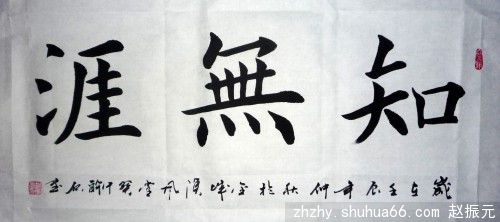 知無涯
歲在壬辰年仲秋於金城漢風堂
zhzhy.shuhua66.com 赵振元